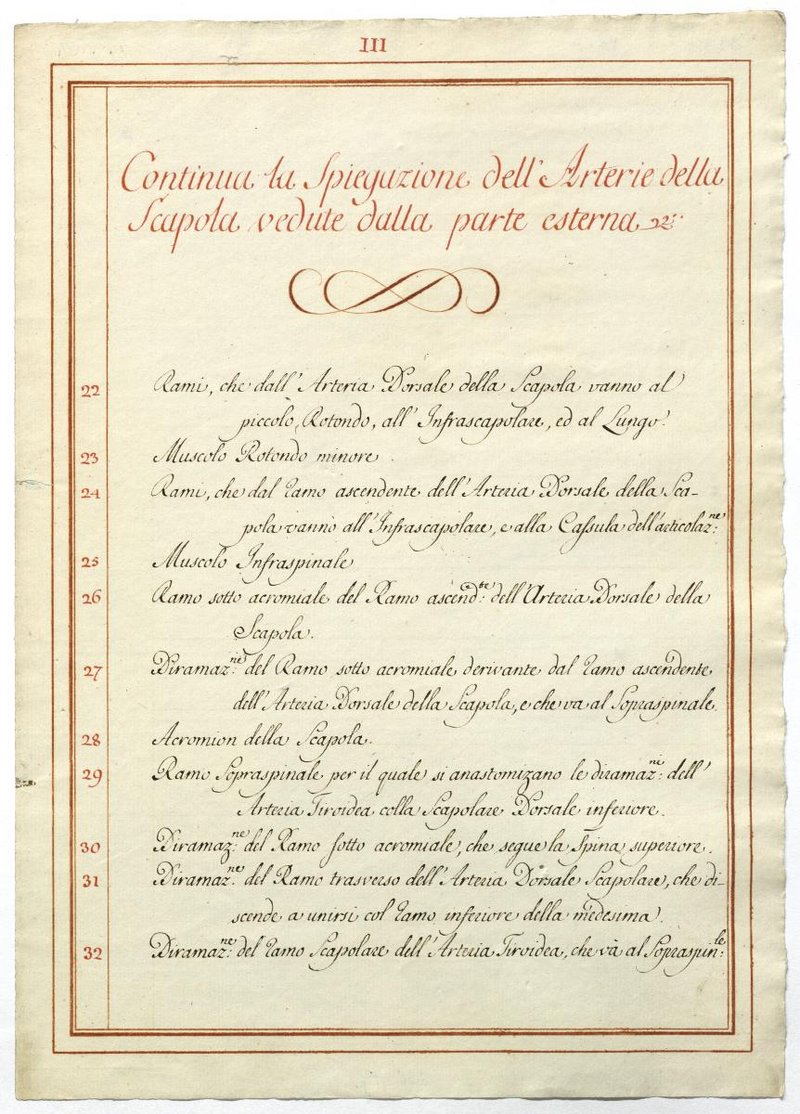 III
Continua la Spiegazione dell'Arterie della
Scapola vedute dalla parte esterna
22 Rami, che dall'Arteria Dorsale della Scapola vanno al
piccolo Rotondo, all'Infrascapolare, ed al Lungo.
23 Muscolo Rotondo minore.
24 Rami, che dal ramo ascendente dell'Arteria Dorsale della Sca-
pola vanno all'Infrascapolare, e alla Cassula dell'articolaz:ne
25 Muscolo Infraspinale
26 Ramo sotto acromiale del Ramo ascend:te dell'Arteria Dorsale della
Scapola.
27 Diramaz:ni del Ramo sotto acromiale derivante dal ramo ascendente
dell'Arteria Dorsale della Scapola, e che va al Sopraspinale.
28 Acromion della Scapola.
29 Ramo Sopraspinale per il quale si anastomizano le diramaz:ni dell'
Arteria Tiroidea colla Scapolare Dorsale inferiore.
30 Diramaz:ne del Ramo sotto acromiale, che segue la Spina superiore.
31 Diramaz:ne del Ramo trasverso dell'Arteria Dorsale Scapolare, che di-
scende a unirsi col ramo inferiore della medesima.
32 Diramaz:ne del ramo Scapolare dell'Arteria Tiroidea, che và al Sopraspin:le